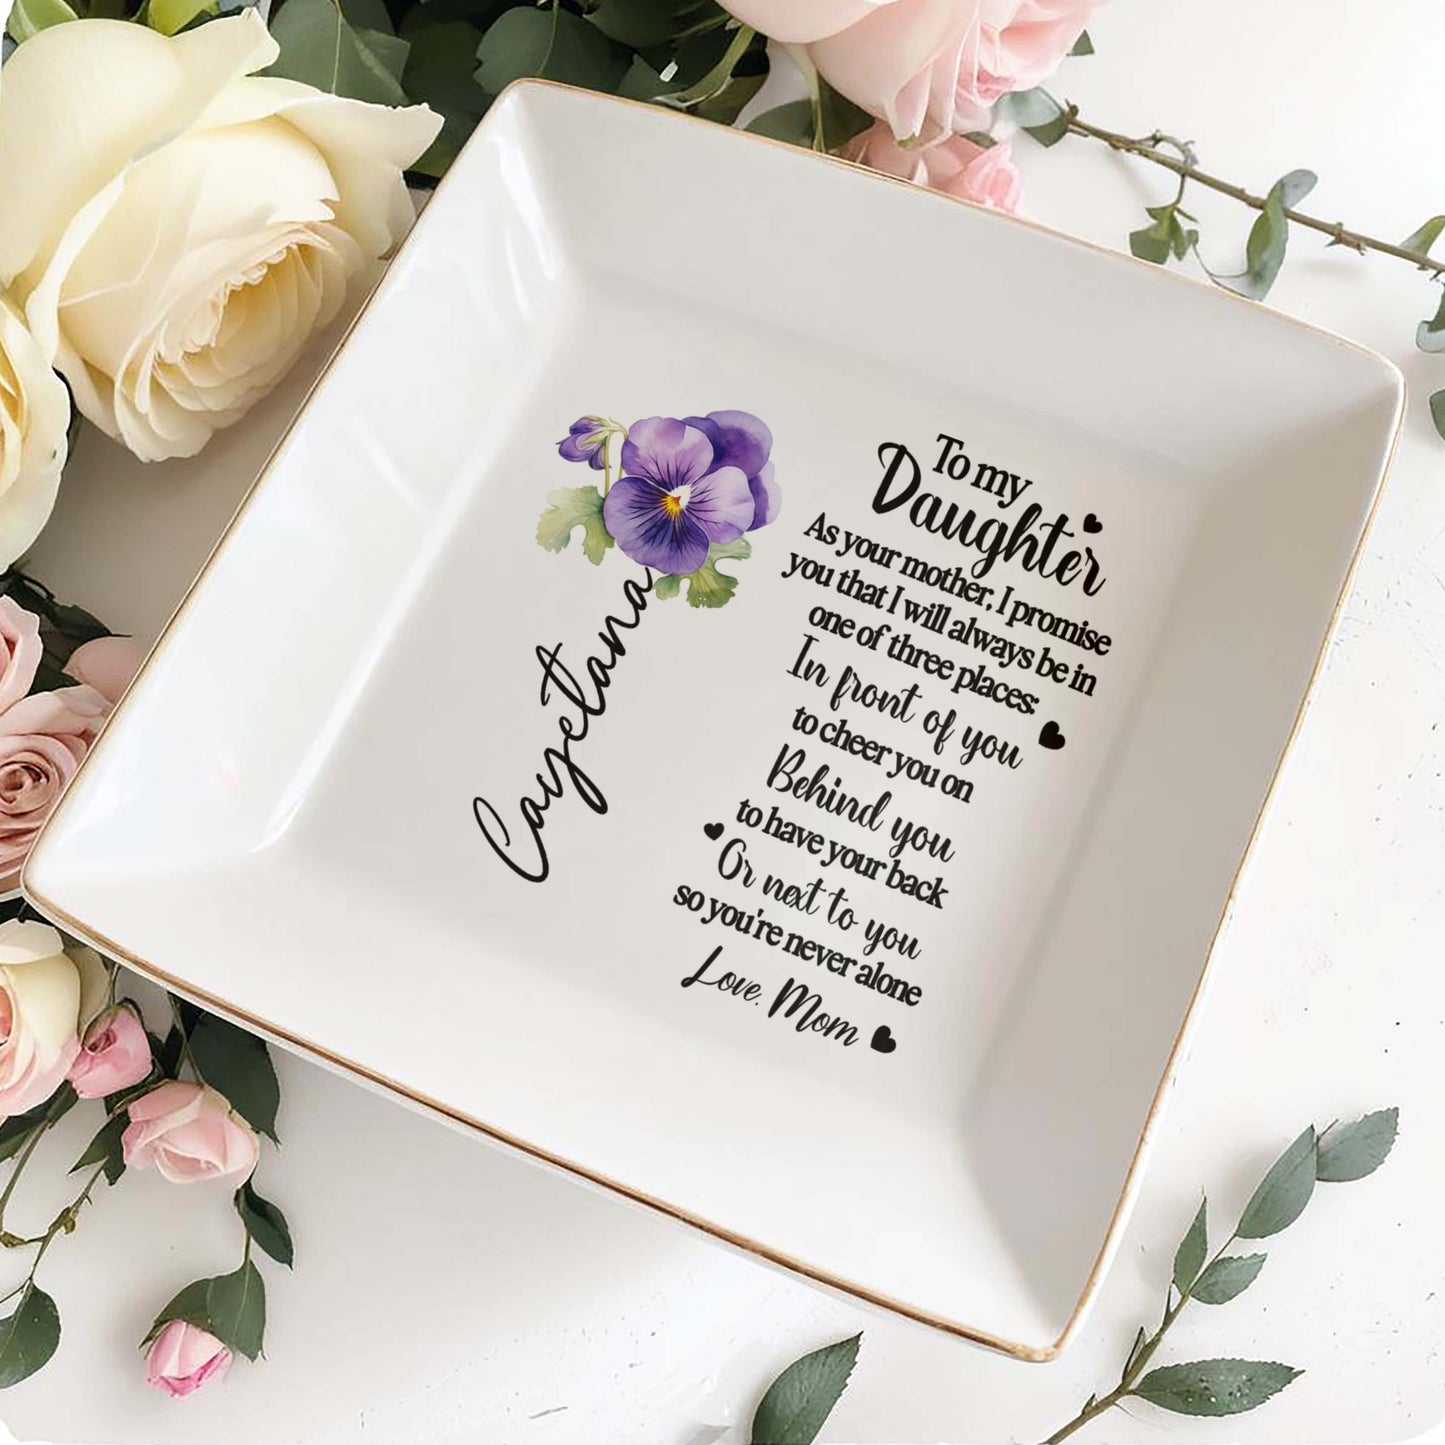 Cayetana
To my
Daughter
As your mother, I promise
you that I will always be in
one of three places:
In front of you
to cheer you on
Behind you
to have your back
Or next to you
so you're never alone
Love, Mom